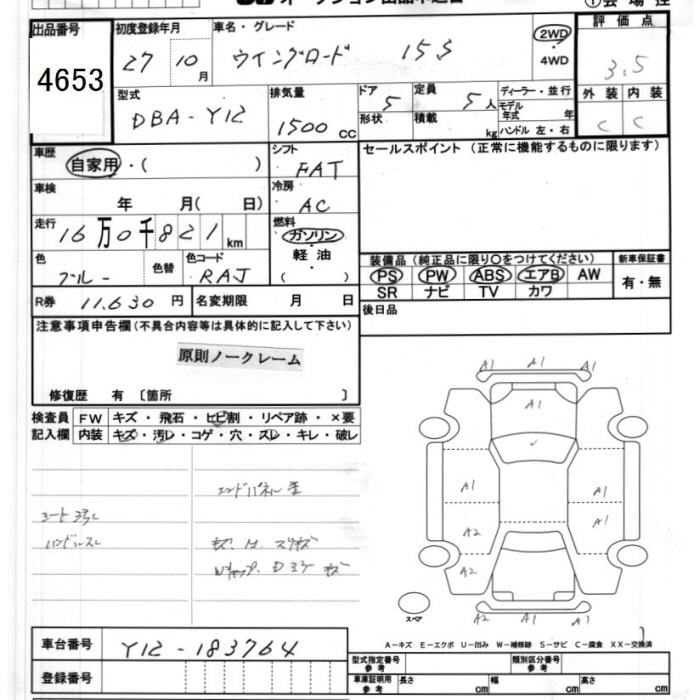 出品番号
4653
初度登録年月
27 10月
車名・グレード
ウイングロード 15S
2WD
4WD
評価点
3.5
外装 内装
C C
型式
DBA-Y12
排気量
1500 cc
ドア
5
形状
定員
5人
積載
kg
ディーラー・並行
モデル年式 年
ハンドル 左・右
車歴
自家用・( )
シフト
FAT
車検
年 月( 日)
冷房
AC
走行
16万0千821km
燃料
ガソリン
軽油
( )
色
ブルー
色替
色コード
RAJ
R券 11,630円
名変期限 月 日
セールスポイント(正常に機能するものに限ります)
装備品(純正品に限り〇をつけてください)
PS PW ABS エアB AW
SR ナビ TV カワ
新車保証書
有・無
後日品
注意事項申告欄(不具合内容等は具体的に記入して下さい)
原則ノークレーム
修復歴 有〔箇所 〕
検査員記入欄
FW キズ・飛石・ヒビ割・リペア跡・×要
内装 キズ・汚レ・コゲ・穴・スレ・キレ・破レ
A1 A1 A1
A1
A1 A1
A2 A1
A2
A2 A1 A1
スペア
A-キズ E-エクボ U-凹み W-補修跡 S-サビ C-腐食 XX-交換済
車台番号
Y12-183764
登録番号
型式指定番号 参考
類別区分番号 参考
車庫証明用 参考
長さ cm
幅 cm
高さ cm